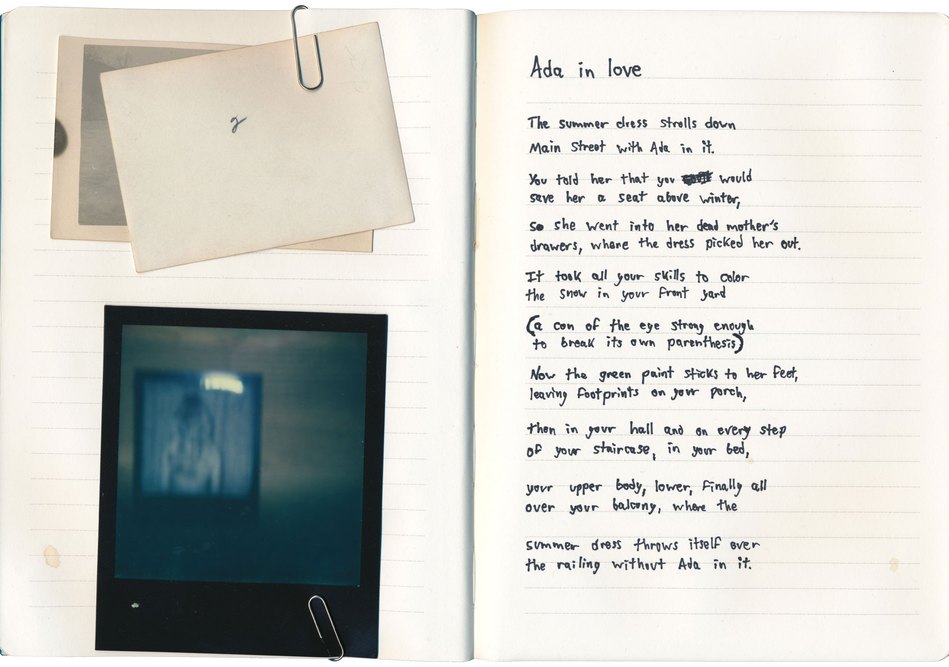 2
Ada in love
The summer dress strolls down
Main Street with Ada in it.
You told her that you would
save her a seat above winter,
so she went into her dead mother's
drawers, where the dress picked her out.
It took all your skills to color
the snow in your front yard
(a con of the eye strong enough
to break its own parenthesis)
Now the green paint sticks to her feet,
leaving footprints on your porch,
then in your hall and on every step
of your staircase, in your bed,
your upper body, lower, finally all
over your balcony, where the
summer dress throws itself over
the railing without Ada in it.